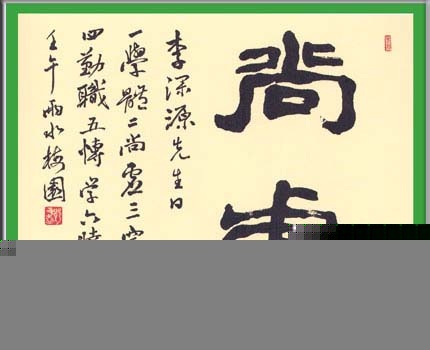 尚
李深源先生曰
一學體二尚虛三
四勤職五博学六
壬午雨水梅園